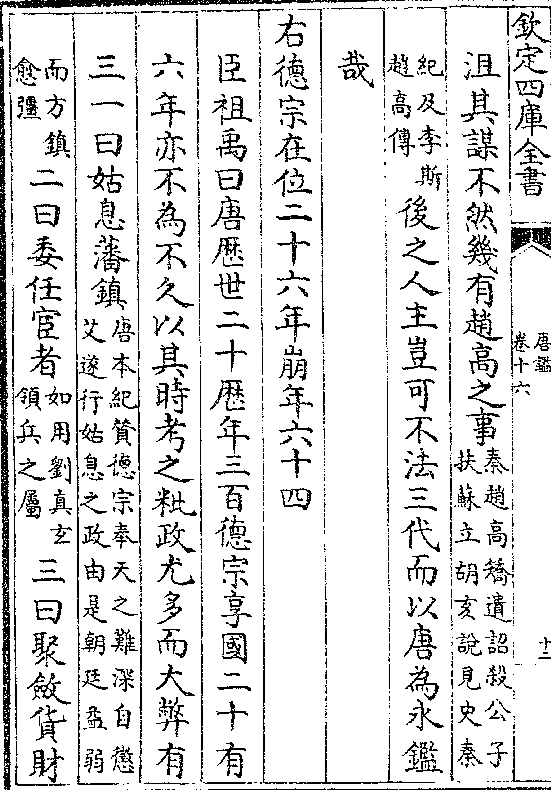 欽定四庫全書
唐鑑
卷十六
十二
沮其謀不然幾有趙高之事秦趙高矯遺詔殺公子
扶蘇立胡亥說見史秦
紀及李斯
趙高傳後之人主豈可不法三代而以唐為永鑑
哉
右德宗在位二十六年崩年六十四
臣祖禹曰唐歷世二十歷年三百德宗享國二十有
六年亦不為不久以其時考之粃政尤多而大弊有
三一曰姑息藩鎮唐本紀贊德宗奉天之難深自懲
艾遂行姑息之政由是朝廷益弱
而方鎮
愈彊二曰委任宦者如用劉真玄
領兵之屬三曰聚斂貨財